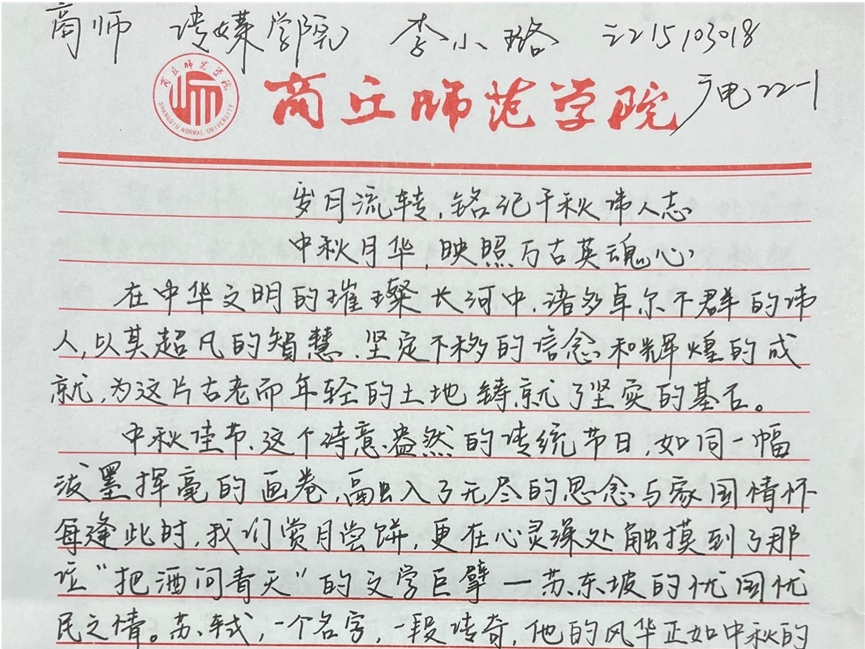 商师 传媒学院 李小璐 2215103018
广电22-1
商丘师范学院
商丘师范学院
SHANGQIU NORMAL UNIVERSITY
岁月流转，铭记千秋伟人志
中秋月华，映照万古英魂心
在中华文明的璀璨长河中，诸多卓尔不群的伟
人，以其超凡的智慧、坚定不移的信念和辉煌的成
就，为这片古老而年轻的土地铸就了坚实的基石。
中秋佳节，这个诗意盎然的传统节日，如同一幅
泼墨挥毫的画卷，融入了无尽的思念与家国情怀
每逢此时，我们赏月尝饼，更在心灵深处触摸到了那
位“把酒问青天”的文学巨擘—苏东坡的忧国忧
民之情。苏轼，一个名字，一段传奇，他的风华正如中秋的